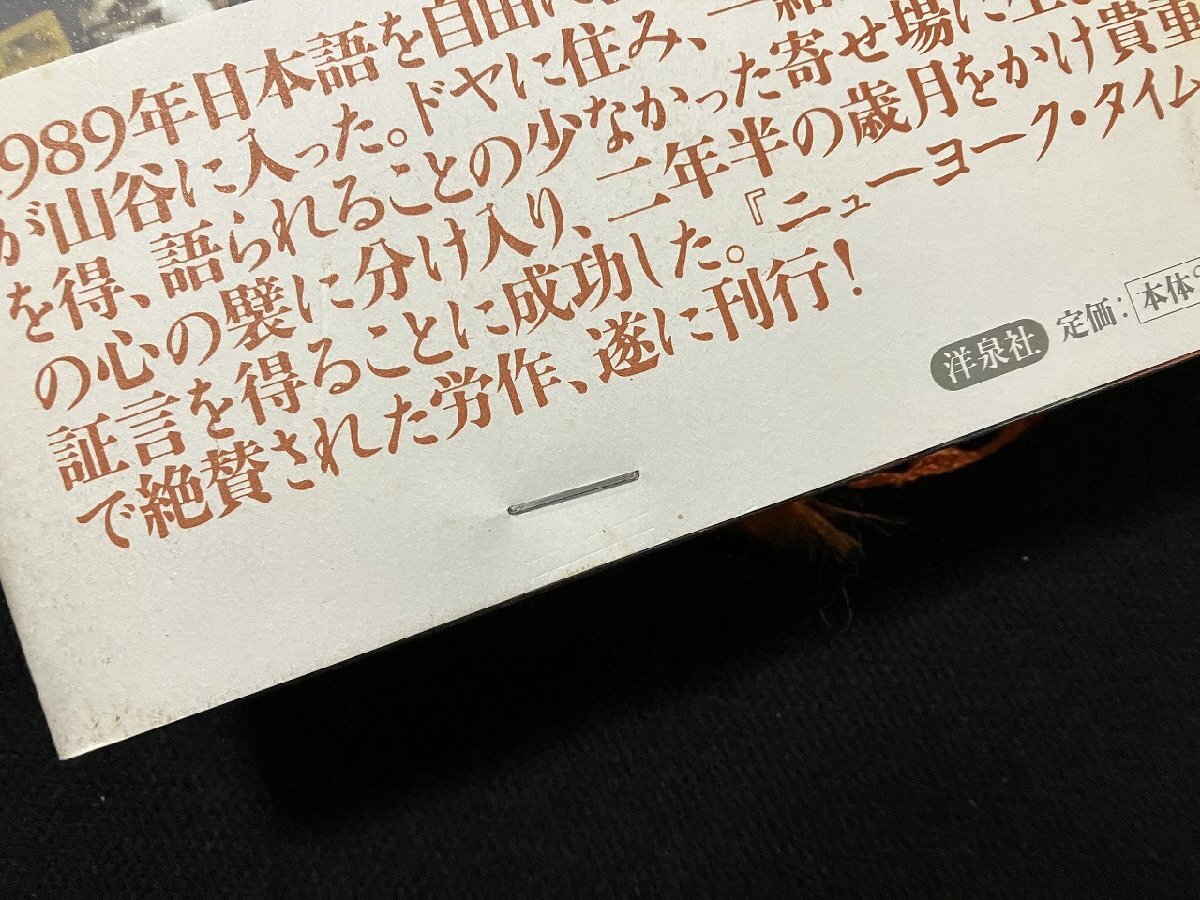 1989年日本語を自由に
が山谷に入った。ドヤに住み、一緒
を得、語られることの少なかった寄せ場に生
の心の襞に分け入り、二年半の歳月をかけ貴重
証言を得ることに成功した。『ニューヨーク・タイム
で絶賛された労作、遂に刊行！
洋泉社 定価：本体